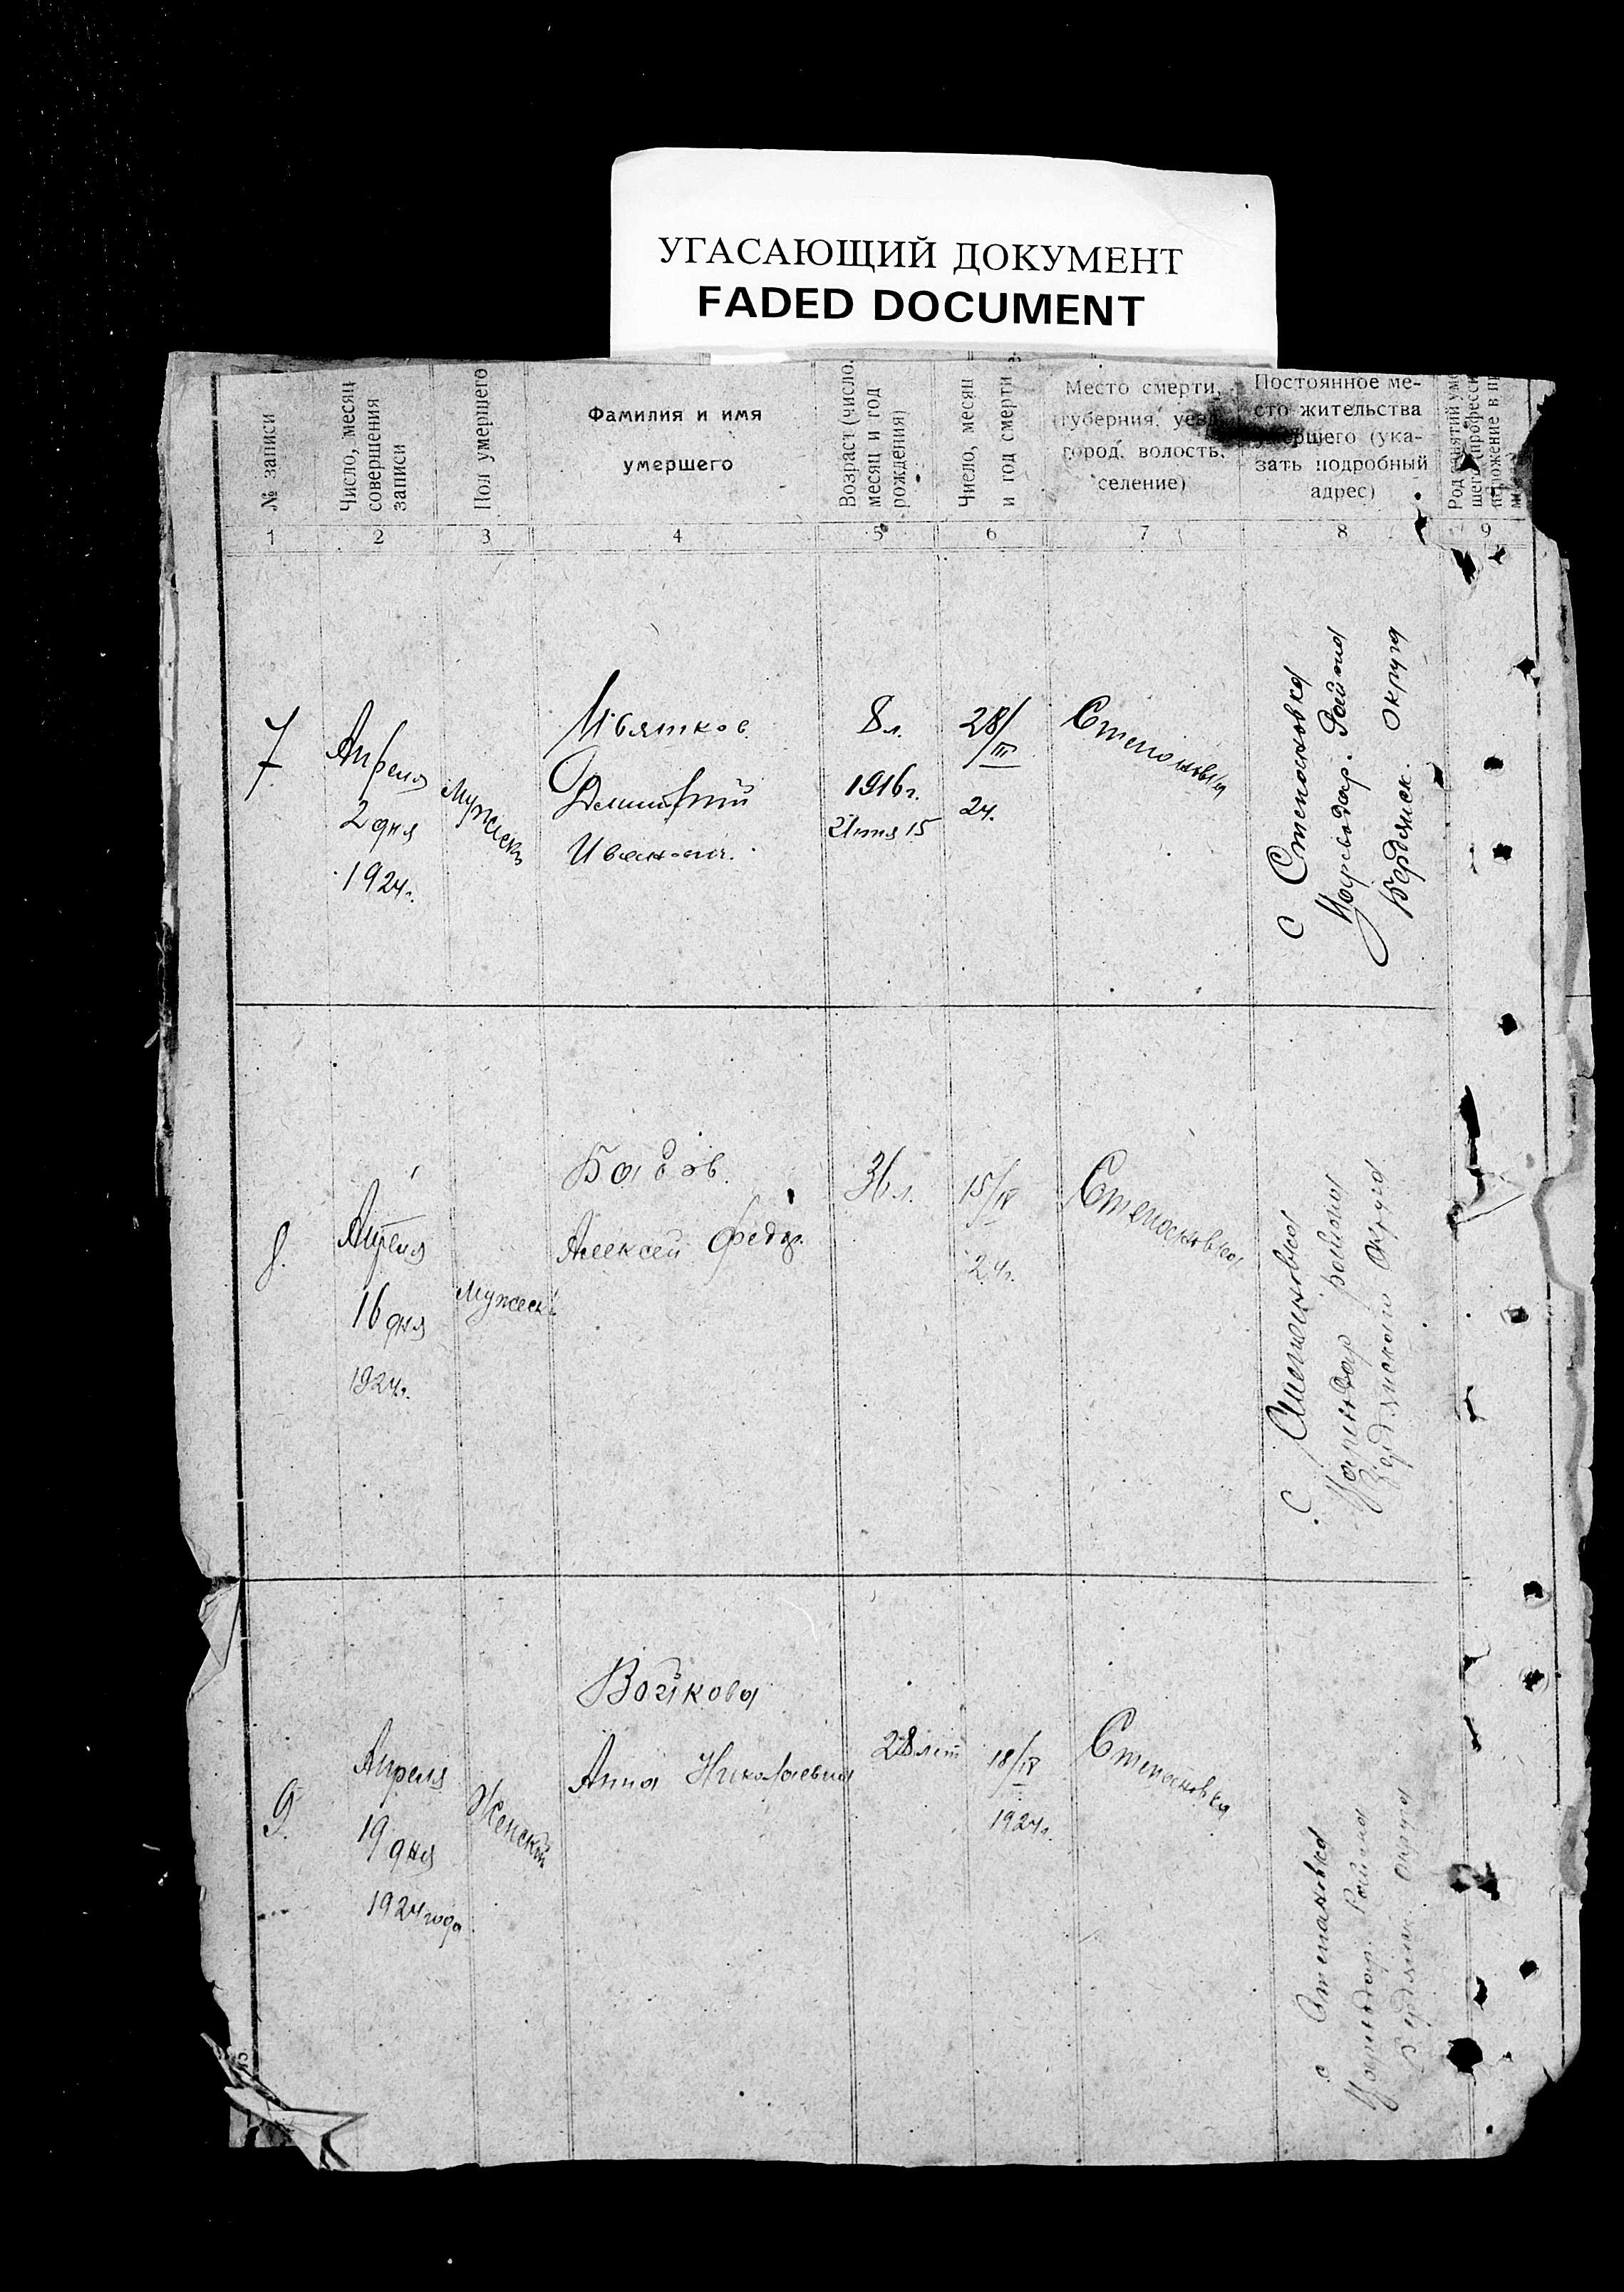 УГАСАЮЩИЙ ДОКУМЕНТ
FADED DOCUMENT
№ записи
Число, месяц
совершения
записи
Пол умершего
Фамилия и имя
умершего
Возраст (число,
месяц и год
рождения)
Число, месяц
и год смерти
Место смерти,
губерния, уезд,
город, волость,
селение)
Постоянное ме-
сто жительства
умершего (ука-
зать подробный
адрес)
1
2
3
4
5
6
7
8
9
7
Апреля
2 дня
1924г.
Мужеск
Дмитрий
Иванович.
8 л.
1916 г.
15
28/III
24.
Степановка
С Степановка
Царевдар. Района
Бердянск. Округа
8.
Апреля
16 дня
1924г.
Мужеск
Бабов.
Алексей Федор.
36 л.
15/IV
24г.
Степановка
С Степановка
района
Округа
9.
Апреля
19 дня
1924 года
Женский
Войкова
Анна Николаевна
28 лет
18/IV
1924г.
Степановка
с Степановка
Района
Бердянск. округа